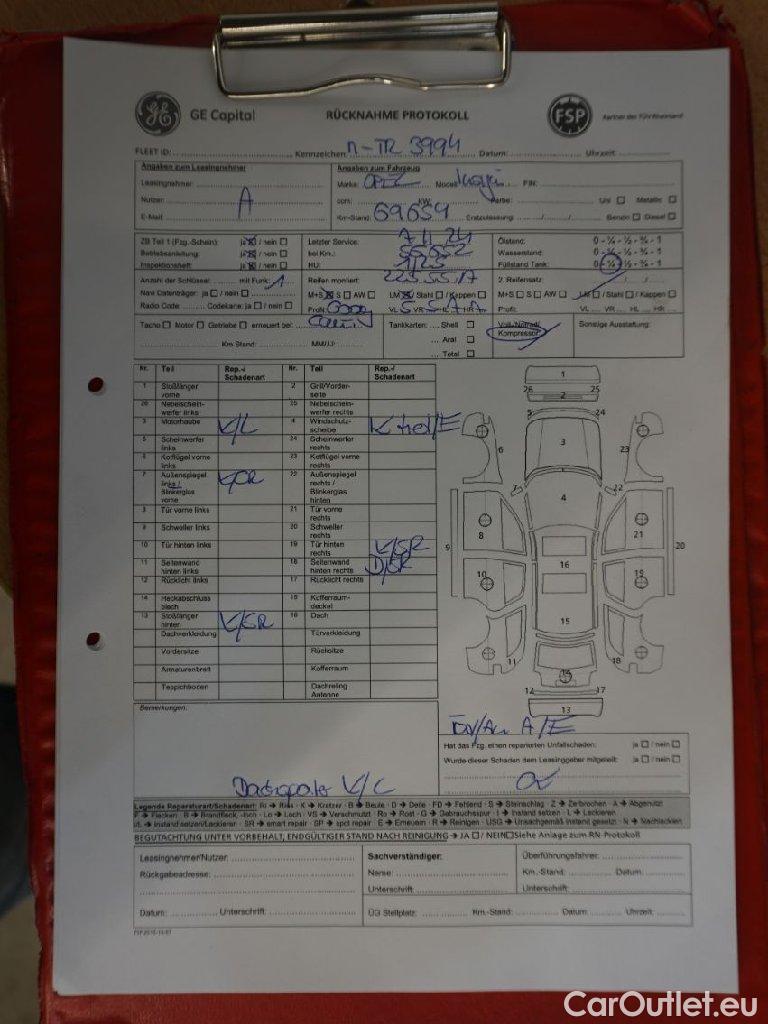 GE Capital RÜCKNAHME PROTOKOLL FSP Partner des TÜV Rheinland
FLEET ID: Kennzeichen: n-TR 3994 Datum: Uhrzeit:
Angaben zum Leasingnehmer Angaben zum Fahrzeug
Leasingnehmer: Marke: OPEL Modell: FIN:
Nutzer: A ccm: KW: Farbe: Uni Metallic
E-Mail: Km-Stand: 69659 Erstzulassung: Benzin Diesel
ZB Teil 1 (Fzg.-Schein): ja / nein Letzter Service: Ölstand: 0 - ¼ - ½ - ¾ - 1
Betriebsanleitung: ja / nein bei Km.: Wasserstand: 0 - ¼ - ½ - ¾ - 1
Inspektionsheft: ja / nein HU: 1/23 Füllstand Tank: 0 - ¼ - ½ - ¾ - 1
Anzahl der Schlüssel: mit Funk: 1 Reifen montiert: 225 55 17 2. Reifensatz:
Navi Datenträger: ja / nein M+S S AW LM / Stahl / Kappen M+S S AW LM / Stahl / Kappen
Radio Code: Codekarte: ja / nein Profil: VL VR HL HR Profil: VL VR HL HR
Tacho Motor Getriebe erneuert bei: Tankkarten: Shell Voll-/Notrad/ Sonstige Ausstattung:
Aral Kompressor
Km Stand: MM/JJ: Total
Nr. Teil Rep.-/ Schadenart Nr. Teil Rep.-/ Schadenart
1 Stoßfänger vorne 2 Grill/Vorderseite
26 Nebelscheinwerfer links 25 Nebelscheinwerfer rechts
3 Motorhaube K/L 4 Windschutzscheibe
5 Scheinwerfer links 24 Scheinwerfer rechts
6 Kotflügel vorne links 23 Kotflügel vorne rechts
7 Außenspiegel links / Blinkerglas vorne 22 Außenspiegel rechts / Blinkerglas hinten
8 Tür vorne links 21 Tür vorne rechts
9 Schweller links 20 Schweller rechts
10 Tür hinten links 19 Tür hinten rechts K/SR
11 Seitenwand hinten links 18 Seitenwand hinten rechts D/SR
12 Rücklicht links 17 Rücklicht rechts
14 Heckabschluss blech 15 Kofferraumdeckel
13 Stoßfänger hinten K/SR 16 Dach
Dachverkleidung Türverkleidung
Vordersitze Rücksitze
Armaturenbrett Kofferraum
Teppichboden Dachreling Antenne
1
26 25
2
5 24
3
6 23
7 22
4
8 21
9 20
16
10 19
15
11 18
14
12 17
13
Bemerkungen: A/E
Hat das Fzg. einen reparierten Unfallschaden: ja / nein
Wurde dieser Schaden dem Leasinggeber mitgeteilt: ja / nein
K/L
Legende Reparaturart/Schadenart: Ri → Riss · K → Kratzer · B → Beule · D → Delle · FD → Fehlend · S → Steinschlag · Z → Zerbrochen · A → Abgenutzt
F → Flecken · B → Brandfleck, -loch · Lo → Loch · VS → Verschmutzt · Ro → Rost · G → Gebrauchsspur · I → Instand setzen · L → Lackieren
I/L → Instand setzen/Lackieren · SR → smart repair · SP → spot repair · E → Erneuern · R → Reinigen · USG → Unsachgemäß instand gesetzt · N → Nachlackieren
BEGUTACHTUNG UNTER VORBEHALT, ENDGÜLTIGER STAND NACH REINIGUNG → JA / NEIN Siehe Anlage zum RN-Protokoll
Leasingnehmer/Nutzer: Sachverständiger: Überführungsfahrer:
Rückgabeadresse: Name: Km.-Stand: Datum:
Unterschrift: Unterschrift:
Datum: Unterschrift: ÜG Stellplatz: Km.-Stand: Datum: Uhrzeit:
CarOutlet.eu